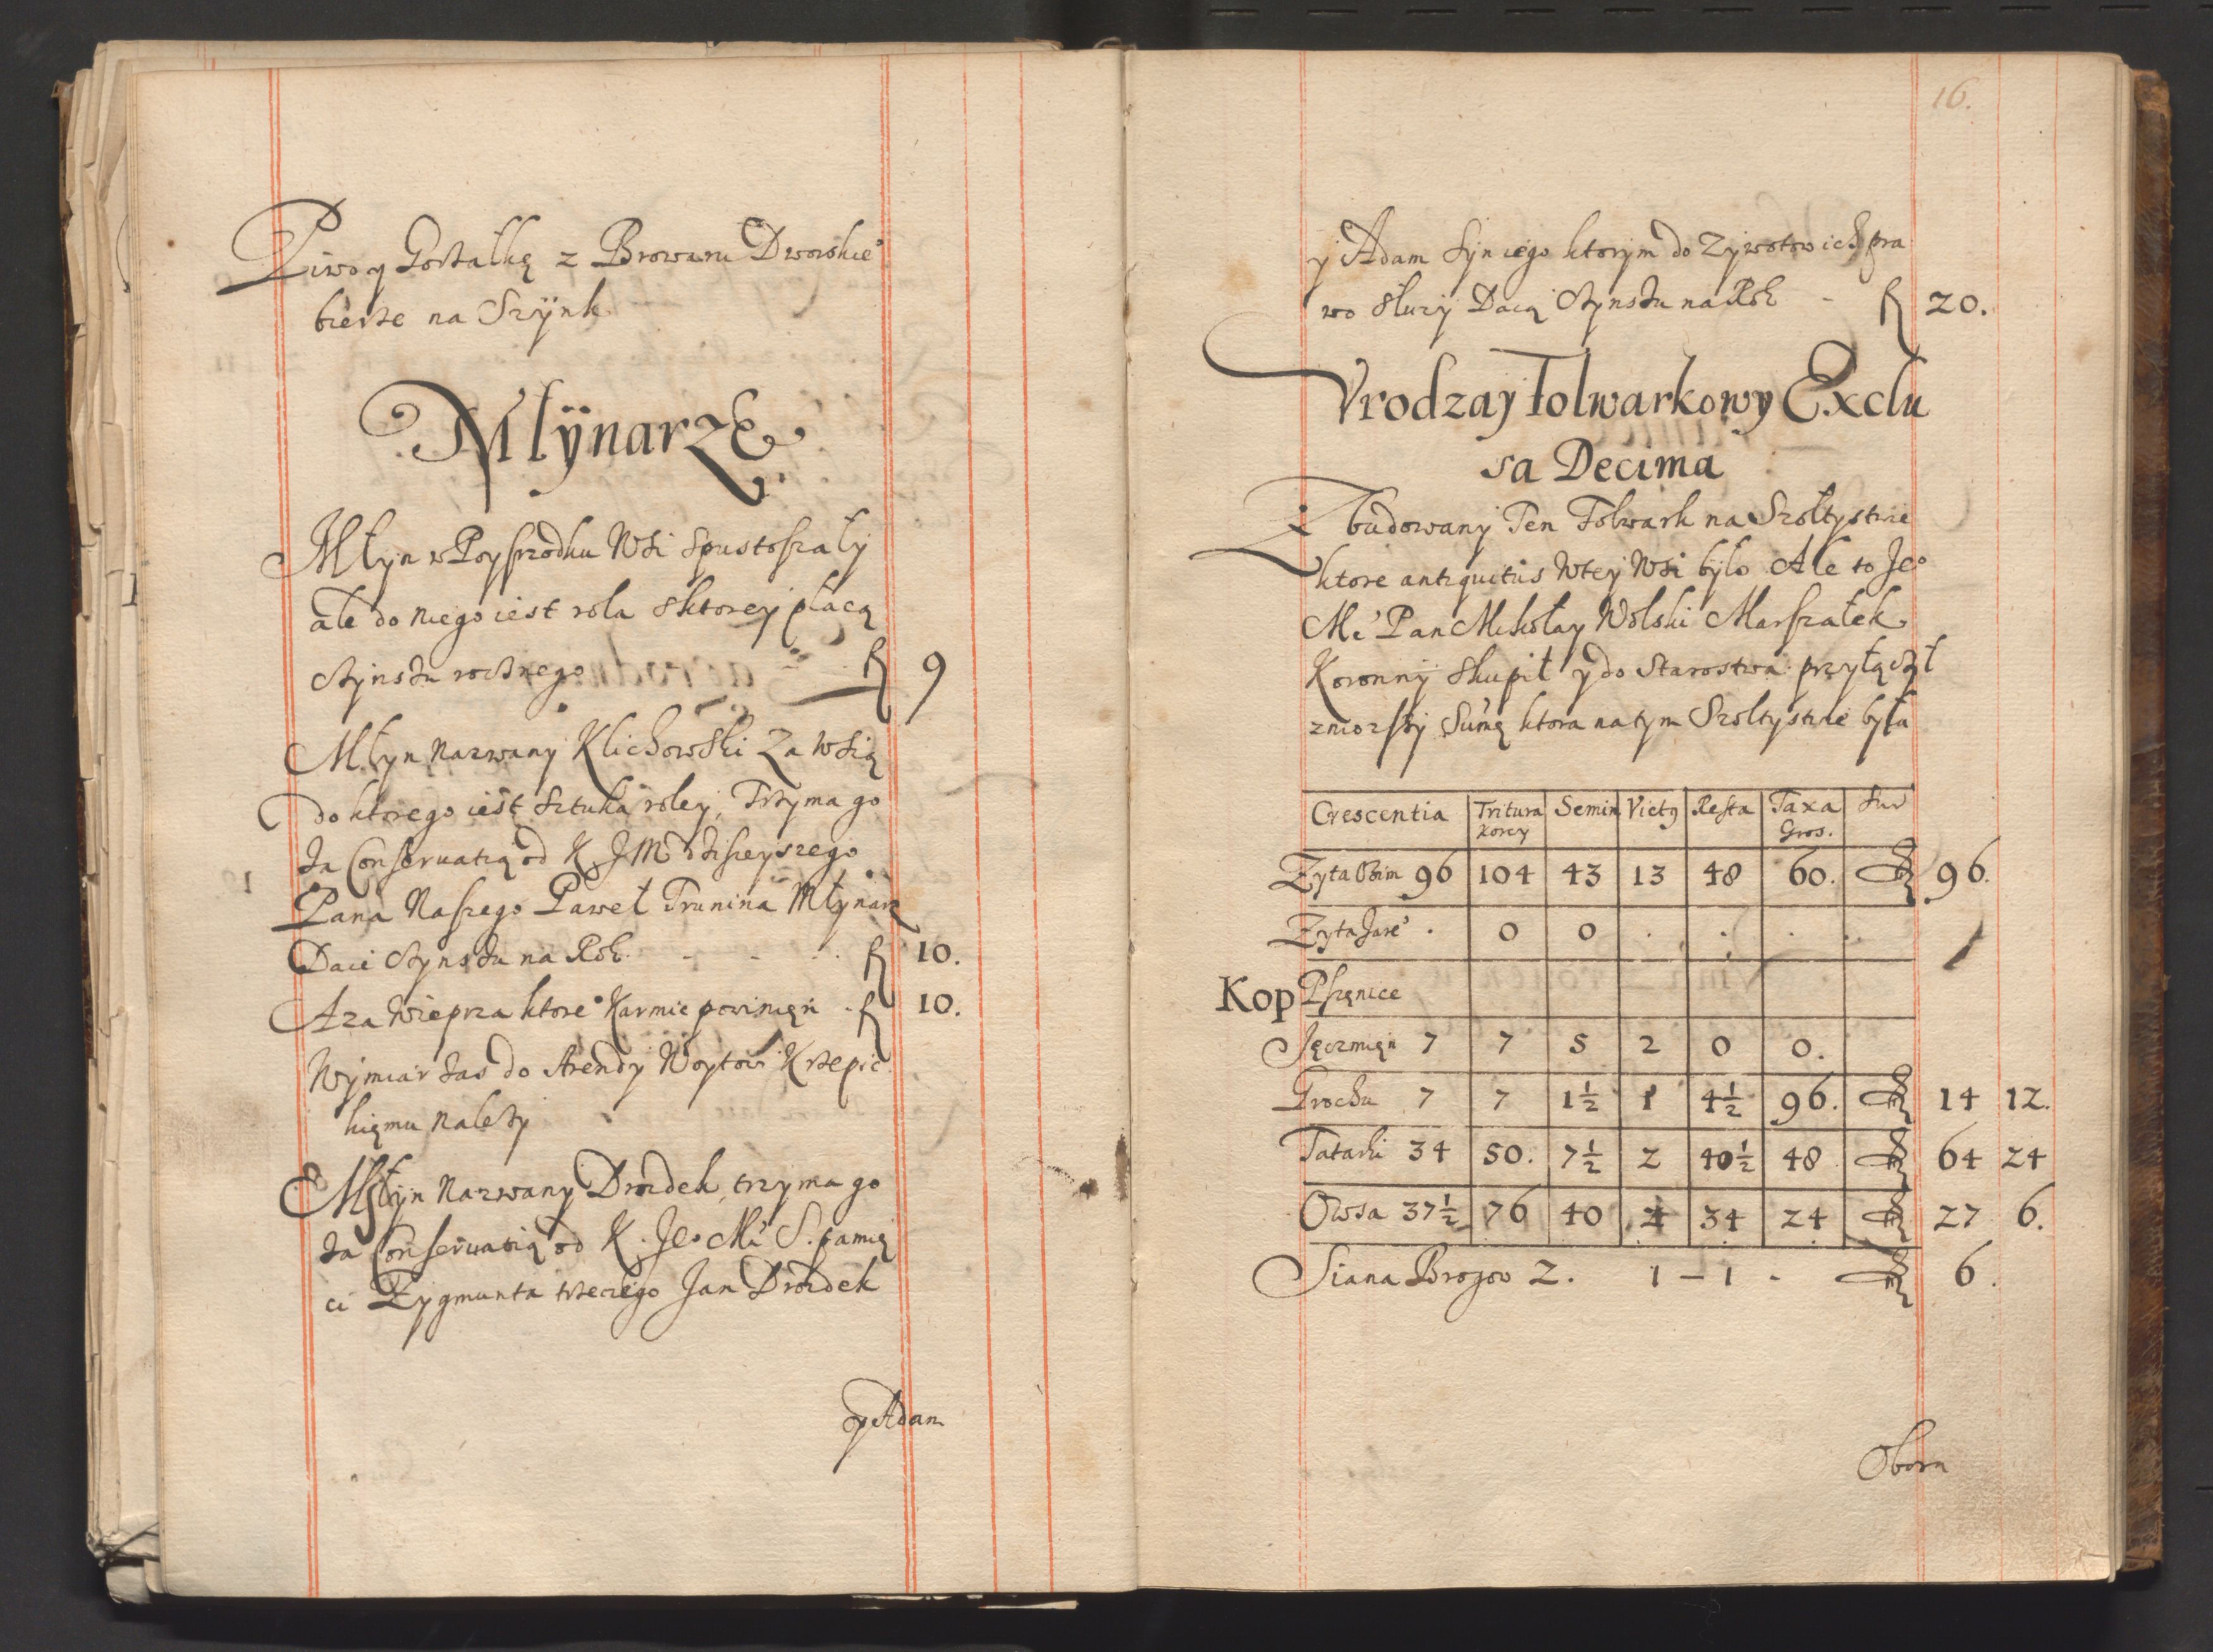 Piwo y Gorzałkę z Browaru Dworskie°
bierze na Szÿnk
MlÿnarzE
Młyn w Poyśrzodku Wsi spustoszały
ale do niego iest rola zktorey płacą
czynszu rocznego fl 9
Młyn nazwany Klichowski Za Wsią
do ktorego iest sztuka roley, Trzyma go
za Conserwatią od K. J M dzisieyszego
Pana Naszego Paweł Trunina Młynarz
Daie czynszu na Rok - - . fl 10.
A za Wieprza ktore° Karmic powinięn . fl 10.
Wymiar zas do Arendy Woytow Krzepic
kięmu należy
Młyn nazwany Drozdek, trzyma go
za Conserwatią od K. Je° Mci S. pamię
ci Zygmunta trzeciego Jan Drozdek
y Adam
16.
y Adam Syn iego ktorym do Zywotow ich pra
wo służy Daią czynszu na Rok - fl 20.
Vrodzaj folwarkowy Exclu
sa Decima
Zbudowany Ten Folwark na Szołtystwie
ktore antiquitus Wtey Wsi było Ale to Je°
Mć Pan Mikołay Wolski Marszałek
Koronny skupił y do Starostwa przyłączył
zniozszy Sumę ktora natym Szołtystwie była
Crescentia Tritura Korcy Semin Victꝯ Resta Taxa Gros. Suṽ
Zyta Ozim 96 104 43 13 48 60. fl 96.
Zyta Jare° . 0 0 . . . .
Kop Pszęnice
Jęczmięn 7 7 5 2 0 0.
Grochu 7 7 1½ 1 4½ 96. fl 14 12.
Tatarki 34 50. 7½ 2 40½ 48 fl 64 24
Owsa 37½ 76 40 2 34 24 fl 27 6.
Siana Brogow 2. 1 - 1 - fl 6.
Obora